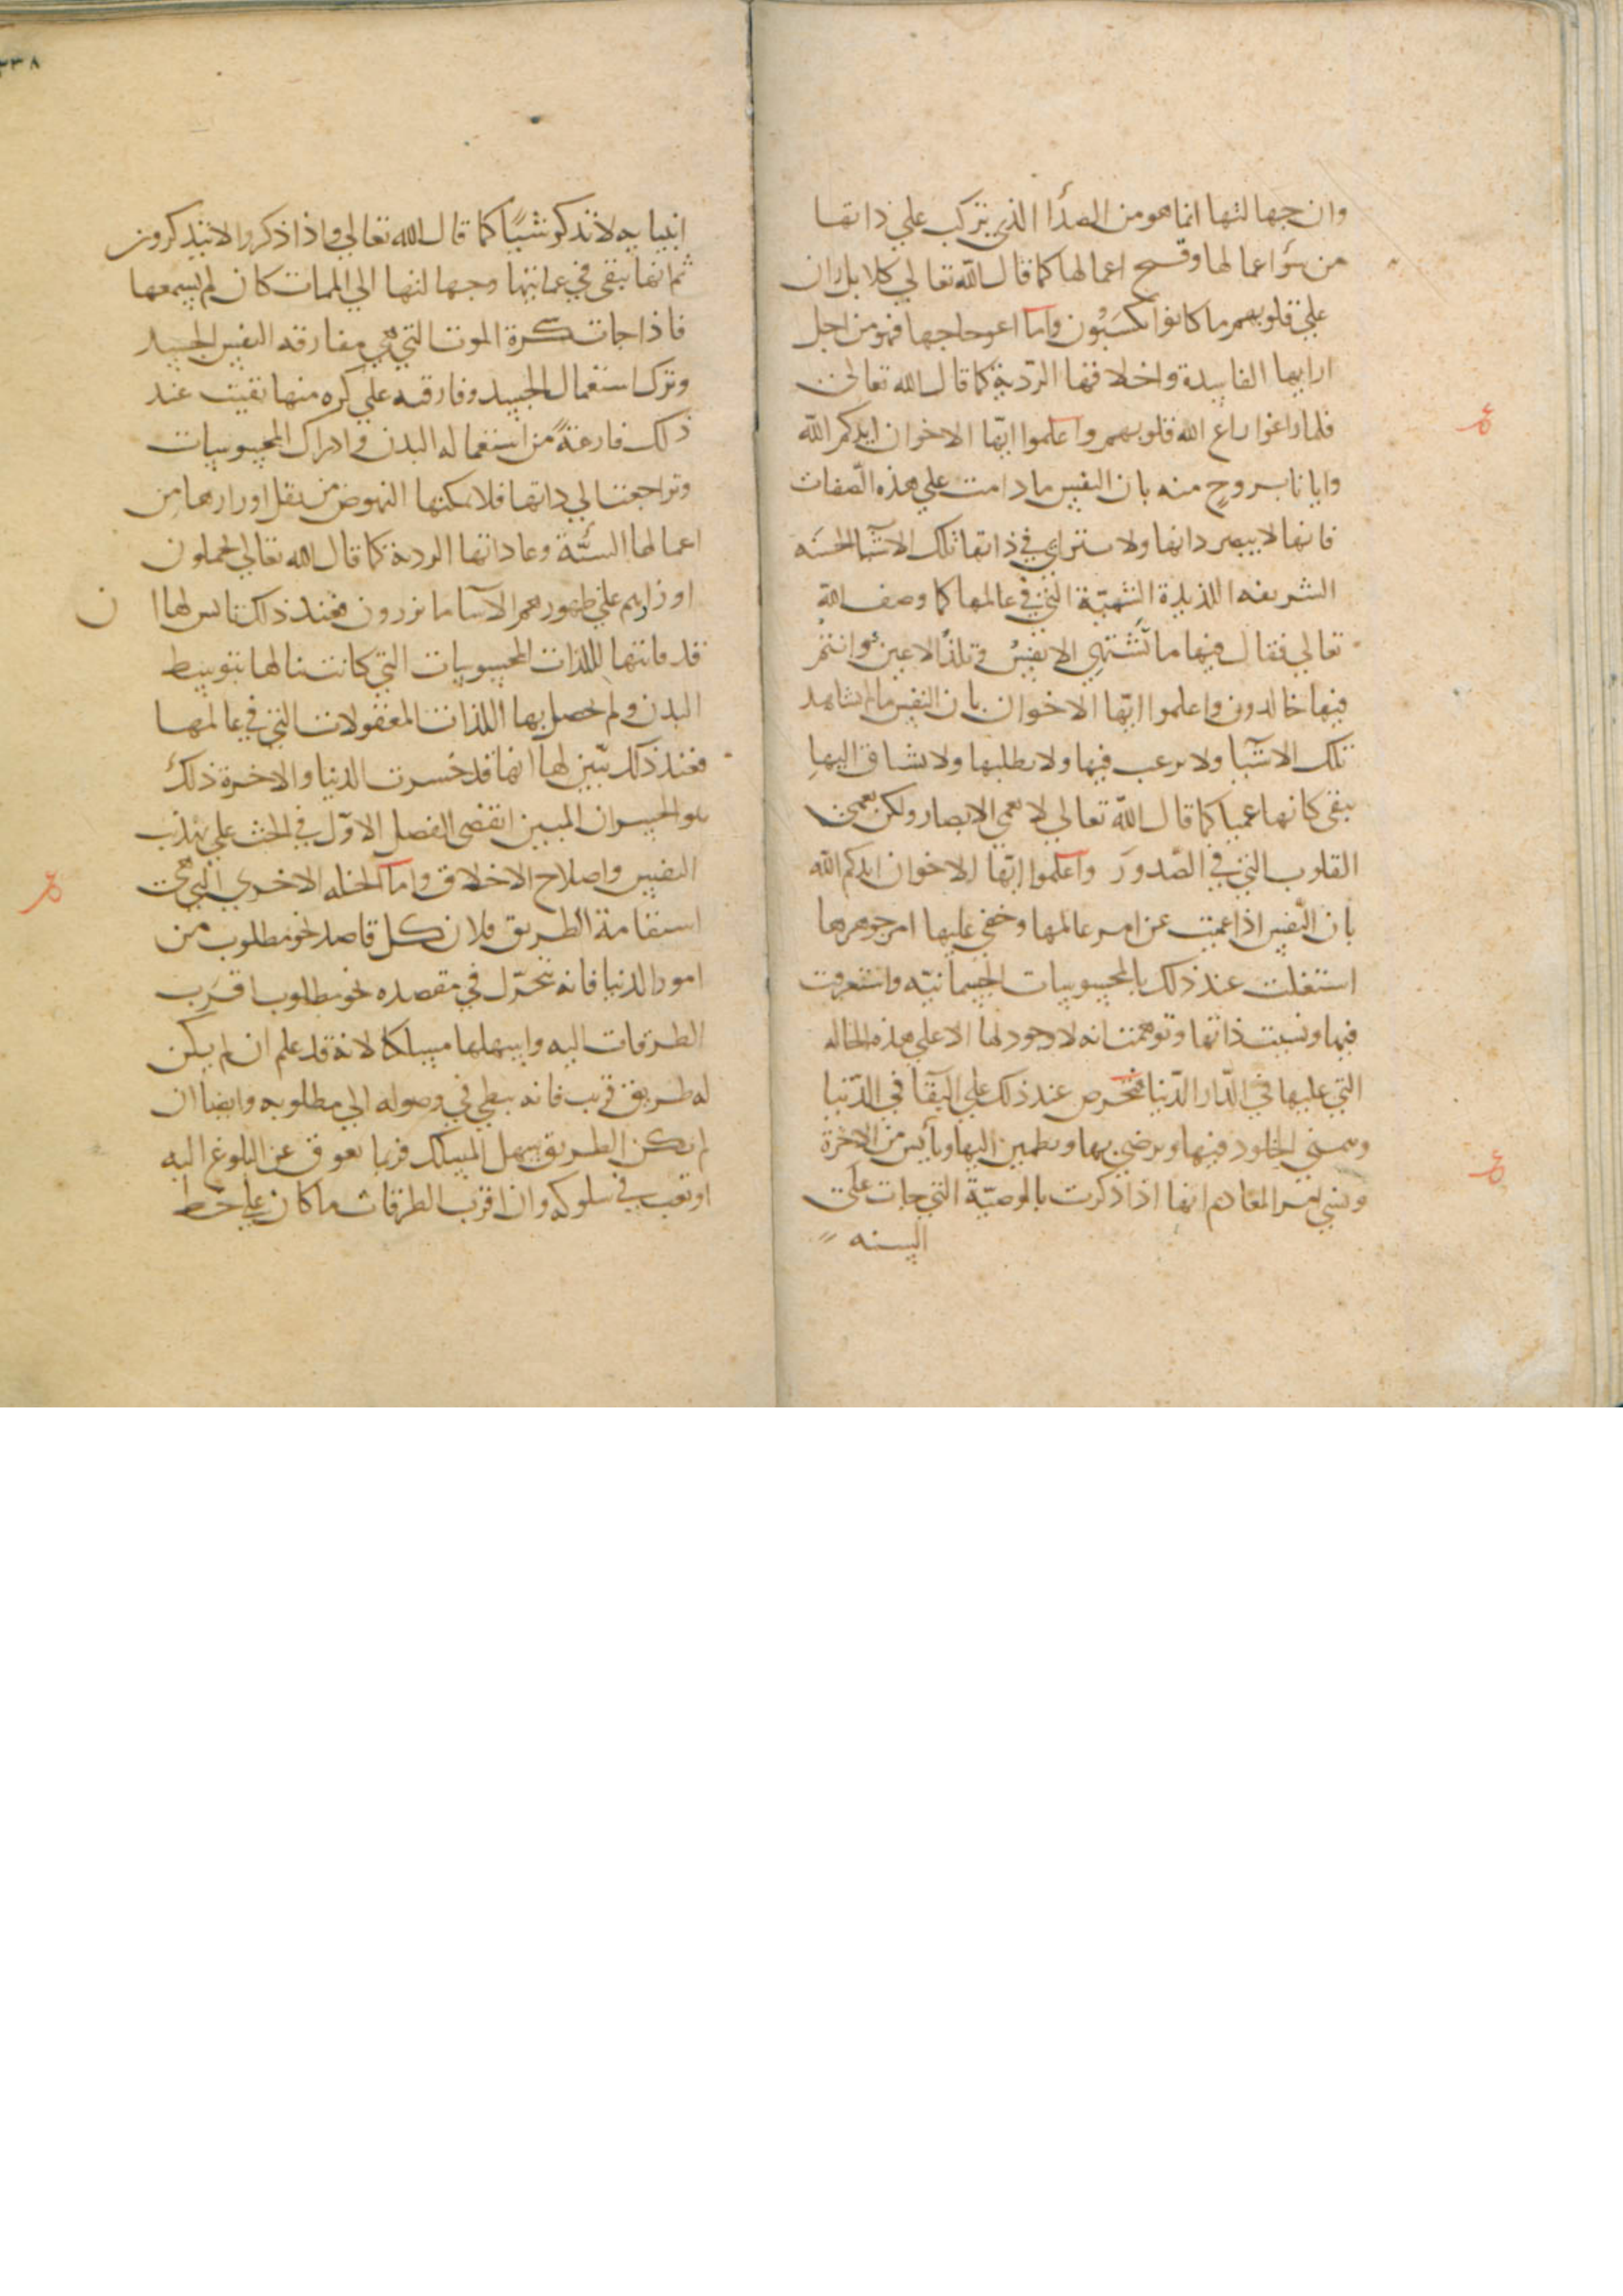 وان جهالتها انما هو من الصدأ الذي تركب علي ذاتها
من سؤ اعمالها وقبيح اعمالها كما قال الله تعالي كلا بل ران
علي قلوبهم ما كانوا يكسبون واما اعوجاجها فهو من اجل
ارايها الفاسدة واخلاقها الردية كما قال الله تعالي
فلما زاغوا زاغ الله قلوبهم واعلموا ايها الاخوان ايدكم الله
وايانا بروح منه بان النفس ما دامت علي هذه الصفات
فانها لا يبصر ذاتها ولا ستراي في ذاتها تلك الاشيا الحسنه
الشريفه اللذيذة الشهية التي في عالمها كما وصف الله
تعالي فقال فيها ما تشتهي الانفس وتلذ الاعين وانتم
فيها خالدون واعلموا ايها الاخوان بان النفس ما لم تشاهد
تلك الاشيا ولا ترغب فيها ولا تطلبها ولا تشتاق اليها
تبقي كانها عميا كما قال الله تعالي لا تعمي الابصار ولكن تعمي
القلوب التي في الصدور واعلموا ايها الاخوان ايدكم الله
بان النفس اذا عميت عن امر عالمها وخفي عليها امر جوهرها
اشتغلت عند ذلك بالمحسوسات الجسمانيه واستغرقت
فيها ونسيت ذاتها وتوهمت انه لا وجود لها الا علي هذه الحاله
التي عليها في الدار الدنيا فتحرص عند ذلك علي البقا في الدنيا
وتتمني الخلود فيها وترضي بها وتطمين اليها وتأيس من الاخرة
وتنسي امر المعاد ثم انها اذا ذكرت بالوصية التي جات علي
السنه
٣٣٨
انبيايه لا تذكر شيًا كما قال الله تعالي واذا ذكروا لا يتذكرون
ثم انها تبقي في عمايتها وجهالتها الي الممات كان لم يسمعها
فاذا جات سكرة الموت التي هي مفارقه النفس الجسد
وترك استعمال الجسد وفارقته علي كره منها بقيت عند
ذلك فارغة من استعماله البدن وادراك المحسوسات
وتراجعت الي ذاتها فلا يمكنها النهوض من ثقل اوزارها من
اعمالها السئية وعاداتها الردية كما قال الله تعالي يحملون
اوزارهم علي ظهورهم الا سا ما يزرون فعند ذلك تاس لها ا ن
قد فاتتها اللذات المحسوسات التي كانت تنالها بتوسط
البدن ولم تحصل بها اللذات المعقولات التي في عالمها
فعند ذلك تبين لها انها قد خسرت الدنيا والاخرة ذلك
هو الخسران المبين انقضي الفصل الاول في الحث علي تهذيب
النفس واصلاح الاخلاق واما الخله الاخري التي هي
استقامة الطريق فلان كل قاصد نحو مطلوب من
امور الدنيا فانه يتحرك في مقصده نحو مطلوبه اقرب
الطرقات اليه واسهلها مسلكا لانه قد علم ان لم يكن
له طريق قريب فانه يبطي في وصوله الي مطلوبه وايضا ان
لم يكن الطريق سهل المسلك فربما يعوق عن البلوغ اليه
او تعب في سلوكه وان اقرب الطرقات ما كان علي خط